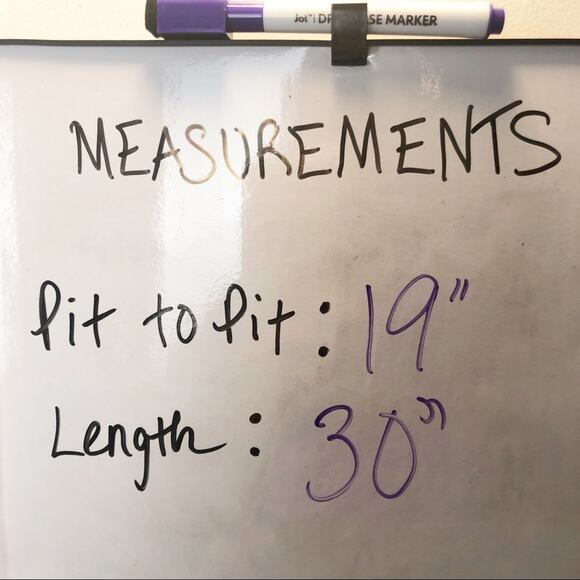 Jot™| DR SE MARKER
MEASUREMENTS
Pit to Pit: 19"
Length: 30"